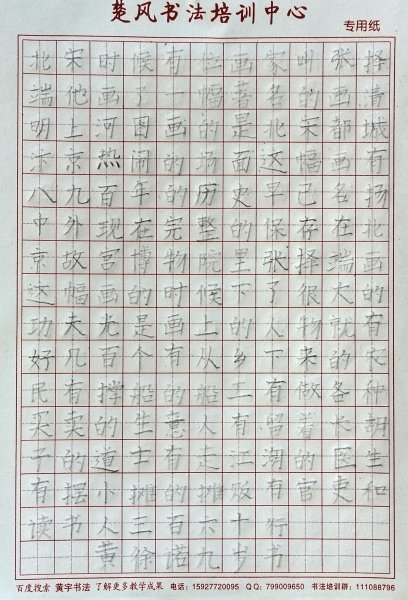 楚风书法培训中心
专用纸
北宋时候有位画家叫张择
端他画了一幅著名的画清
明上河图画的是北宋都城
汴京热闹的场面这幅画有
八九百年的历史早已名扬
中外现在完整的保存在北
京故宫博物院里张择端画
这幅画的时候下了很大的
功夫光是画上的人物就有
好几百个有从乡下来的农
民有撑船的船工有做各种
买卖的生意人有留着长胡
子的道士有走江湖的医生
有摆小摊的摊贩有官吏和
读书人三百六十行
黄徐诺九岁书
百度搜索 黄字书法 了解更多教学成果 电话：15927720095 QQ：799009650 书法培训群：111088796